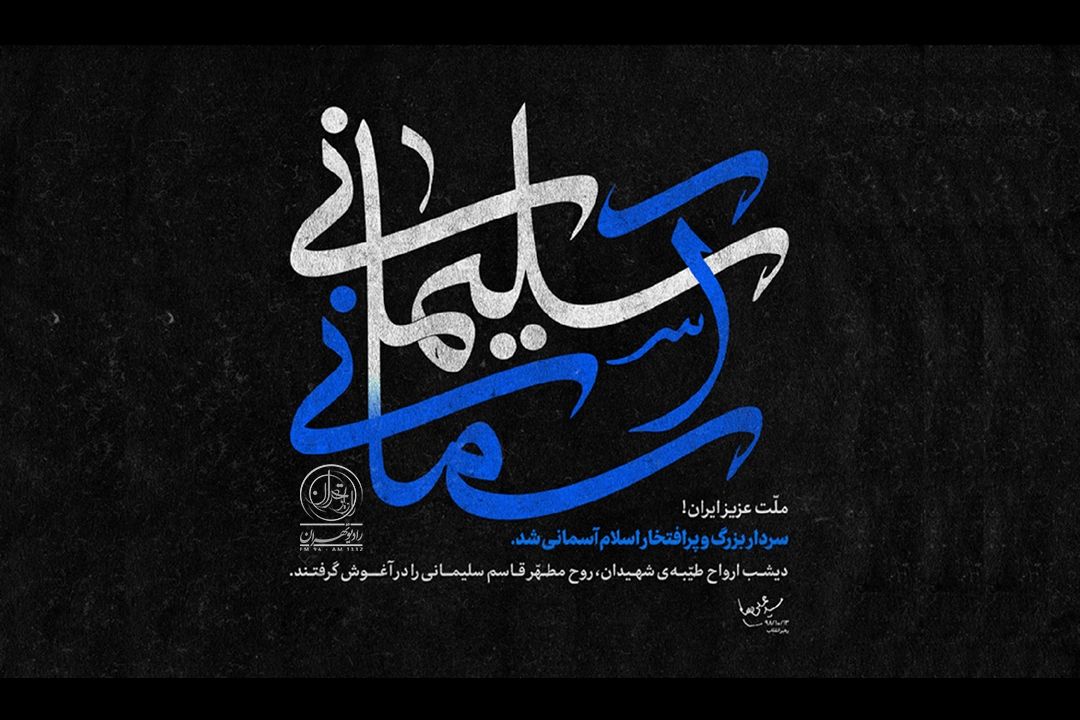 سلیمانی
آسمانی
ملّت عزیز ایران!
سردار بزرگ و پرافتخار اسلام آسمانی شد.
دیشب ارواح طیّبه‌ی شهیدان، روح مطهّر قاسم سلیمانی را در آغوش گرفتند.
۹۸/۱۰/۱۳
رهبر انقلاب
رادیو تهران
FM 94 - AM 1332